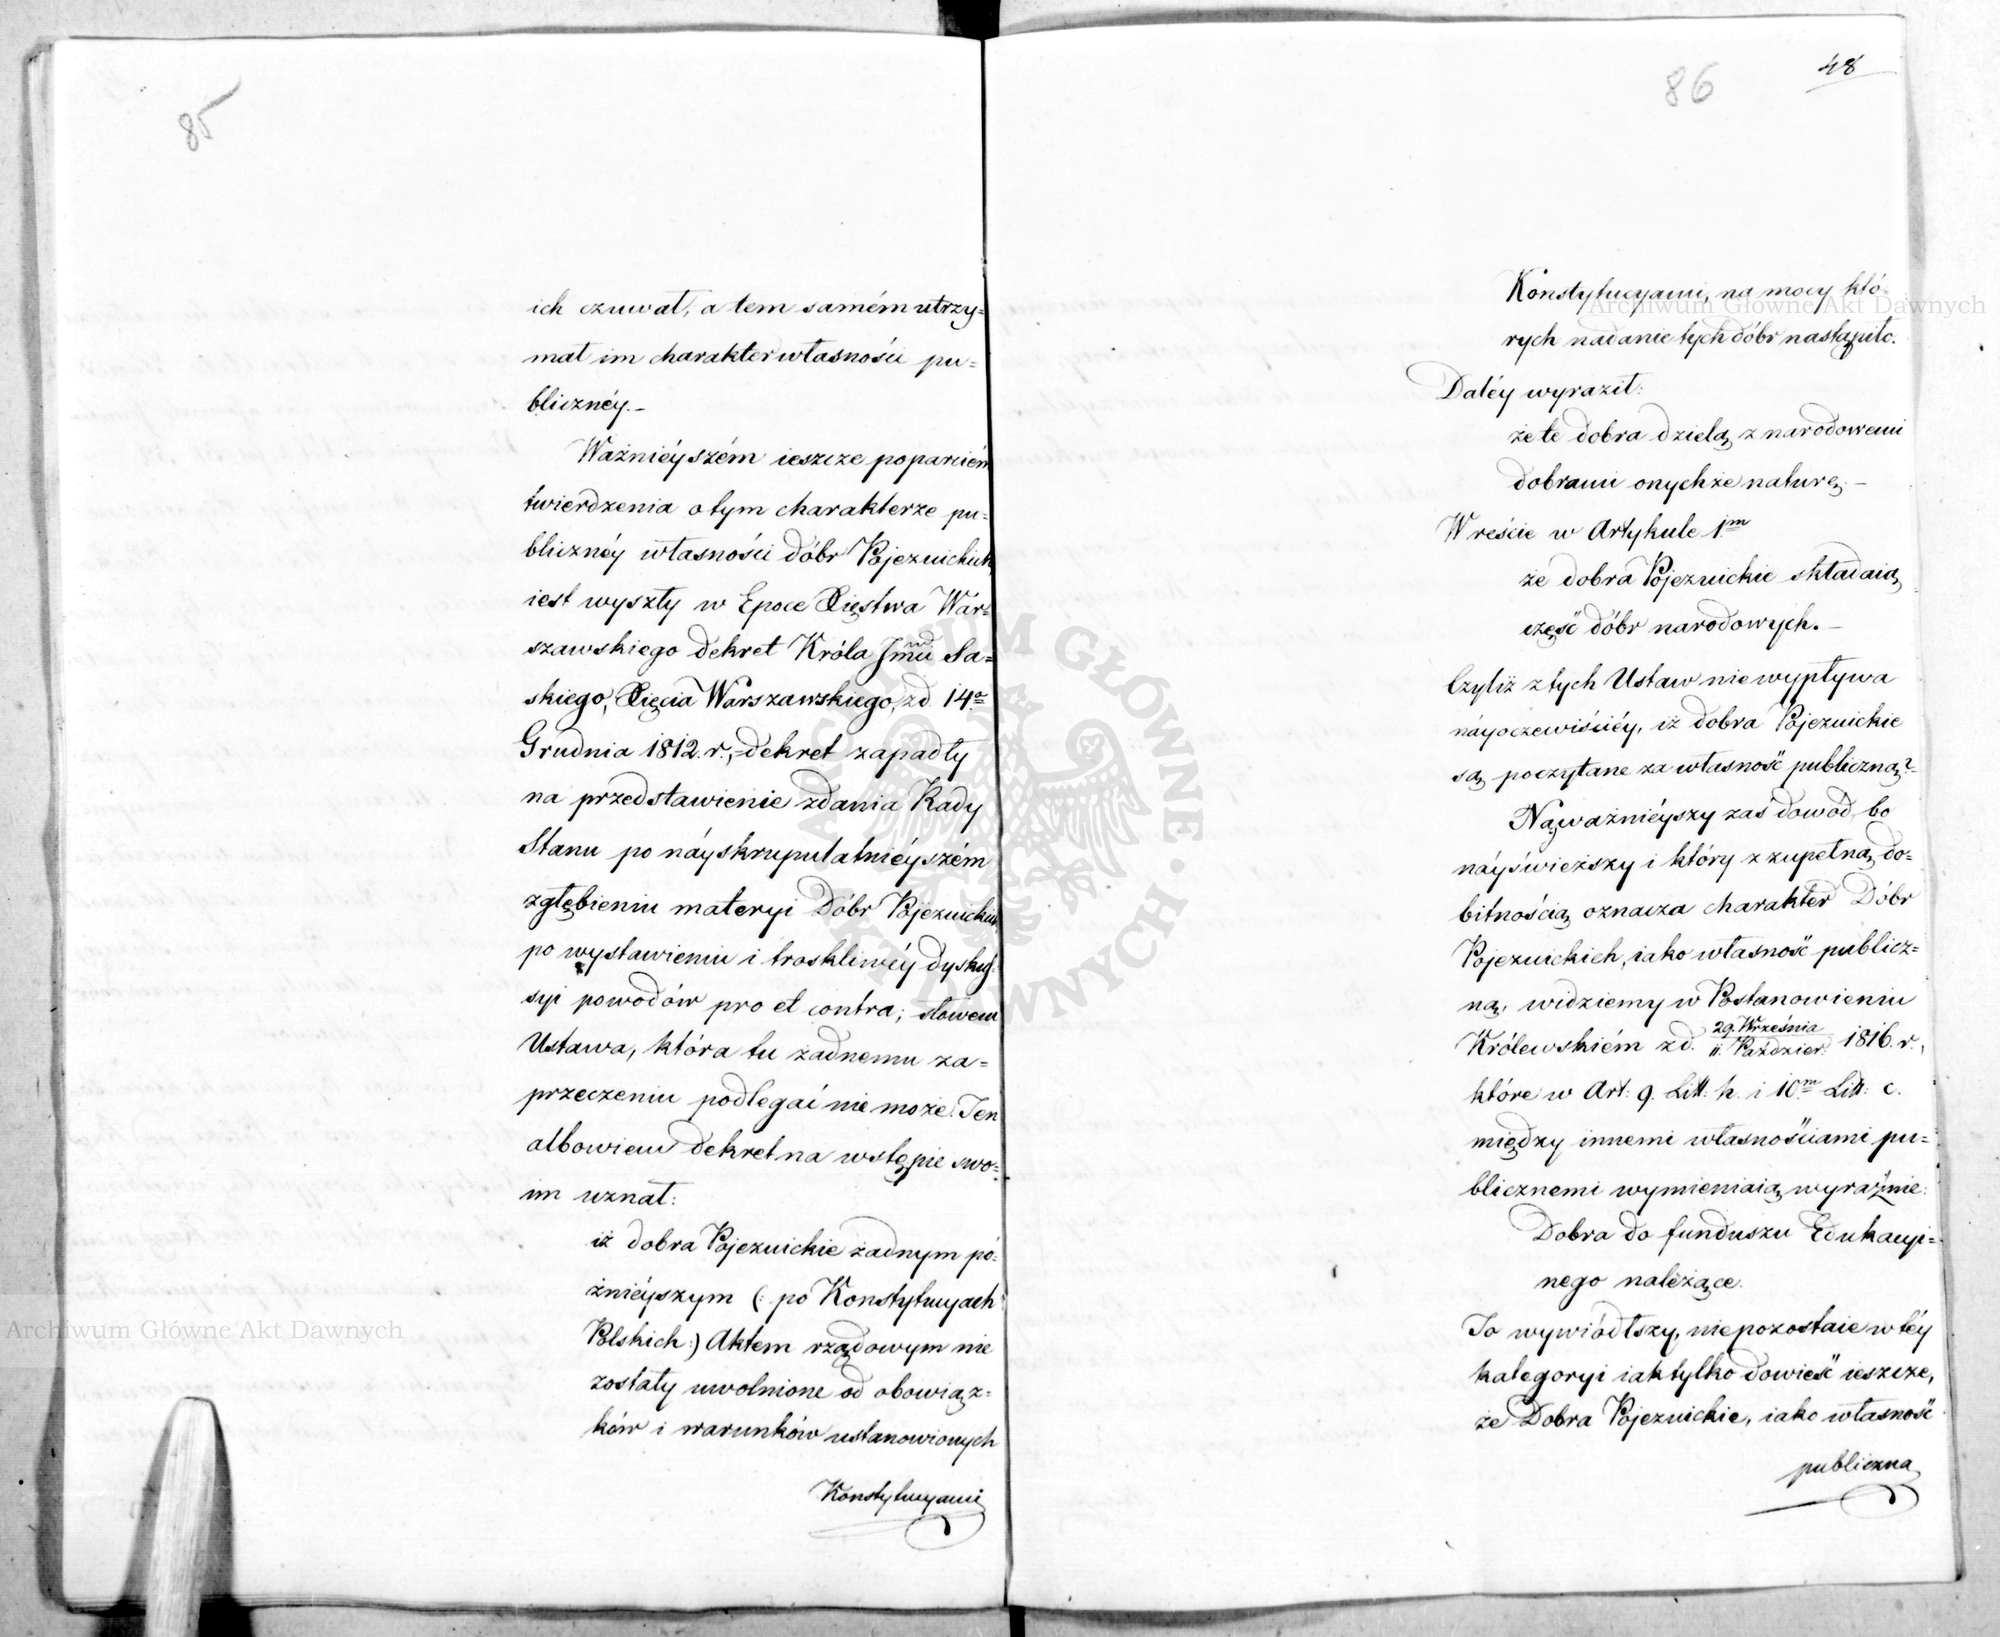 85
ich czuwał, a tem samém utrzy=
mał im charakter własności pu=
blicznéy.–
Ważniéyszém ieszcze poparciem
twierdzenia o tym charakterze pu=
blicznéy własności dóbr Pojezuickich
iest wyszły w Epoce Xięstwa War=
szawskiego dekret Króla Jmci Sa=
skiego, Xięcia Warszawskiego, z d. 14º
Grudnia 1812. r.,= dekret zapadły
na przedstawienie zdania Rady
Stanu po náyskrupulatniéyszém
zgłębieniu materyi Dóbr Pojezuickich
po wystawieniu i troskliwéy dyskus=
syi powodów pro et contra; słowem
Ustawa, która tu żadnemu za=
przeczeniu podlegać nie może. Ten
albowiem dekret na wstępie swo=
im uznał:
iż dobra Pojezuickie żadnym pó=
źniéyszym (: po Konstytucyach
Polskich:) Aktem rządowym nie
zostały uwolnione od obowiąz=
ków i warunków ustanowionych
Konstytucyami
86
48
Konstytucyami, na mocy któ=
rych nadanie tych dóbr nastąpiło.
Daléy wyraził:
że te dobra dzielą z narodowemi
dobrami onychże naturę.–
Wreście w Artykule 1m
że dobra Pojezuickie składaią
część dóbr narodowych.–
Czyliż z tych Ustaw nie wypływa
náyoczewiściéy, iż dobra Pojezuickie
są poczytane za własność publiczną?=
Náyważniéyszy zaś dowód, bo
náyświeższy i który z zupełną do=
bitnością oznacza charakter Dóbr
Pojezuickich, iako własność publicz=
ną, widziemy w Postanowieniu
Królewskiém z d. 29. Września / 11. Paździer: 1816. r.,
które w Art: 9. Litt. h. i 10.m Litt: c.
między innemi własnościami pu=
blicznemi wymieniaią wyraźnie:
Dobra do funduszu Edukacyi=
nego należące.
To wywiódłszy, niepozostaie w téy
kategoryi iak tylko dowieść ieszcze,
że Dobra Pojezuickie, iako własność
publiczna
Archiwum Główne Akt Dawnych
Archiwum Główne Akt Dawnych
ARCHIWUM GŁÓWNE AKT DAWNYCH